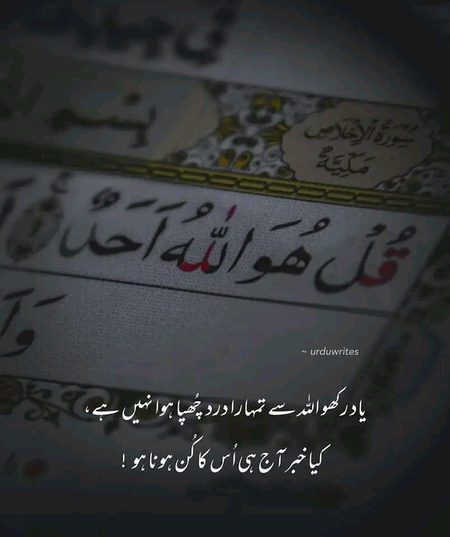 بِسْمِ
سُورَةُ الْإِخْلَاصِ
مَكِّيَّةٌ
قُلْ هُوَ اللّٰهُ اَحَدٌ
~ urduwrites
یاد رکھو اللہ سے تمہارا درد چُھپا ہوا نہیں ہے ،
کیا خبر آج ہی اُس کا کُن ہونا ہو !